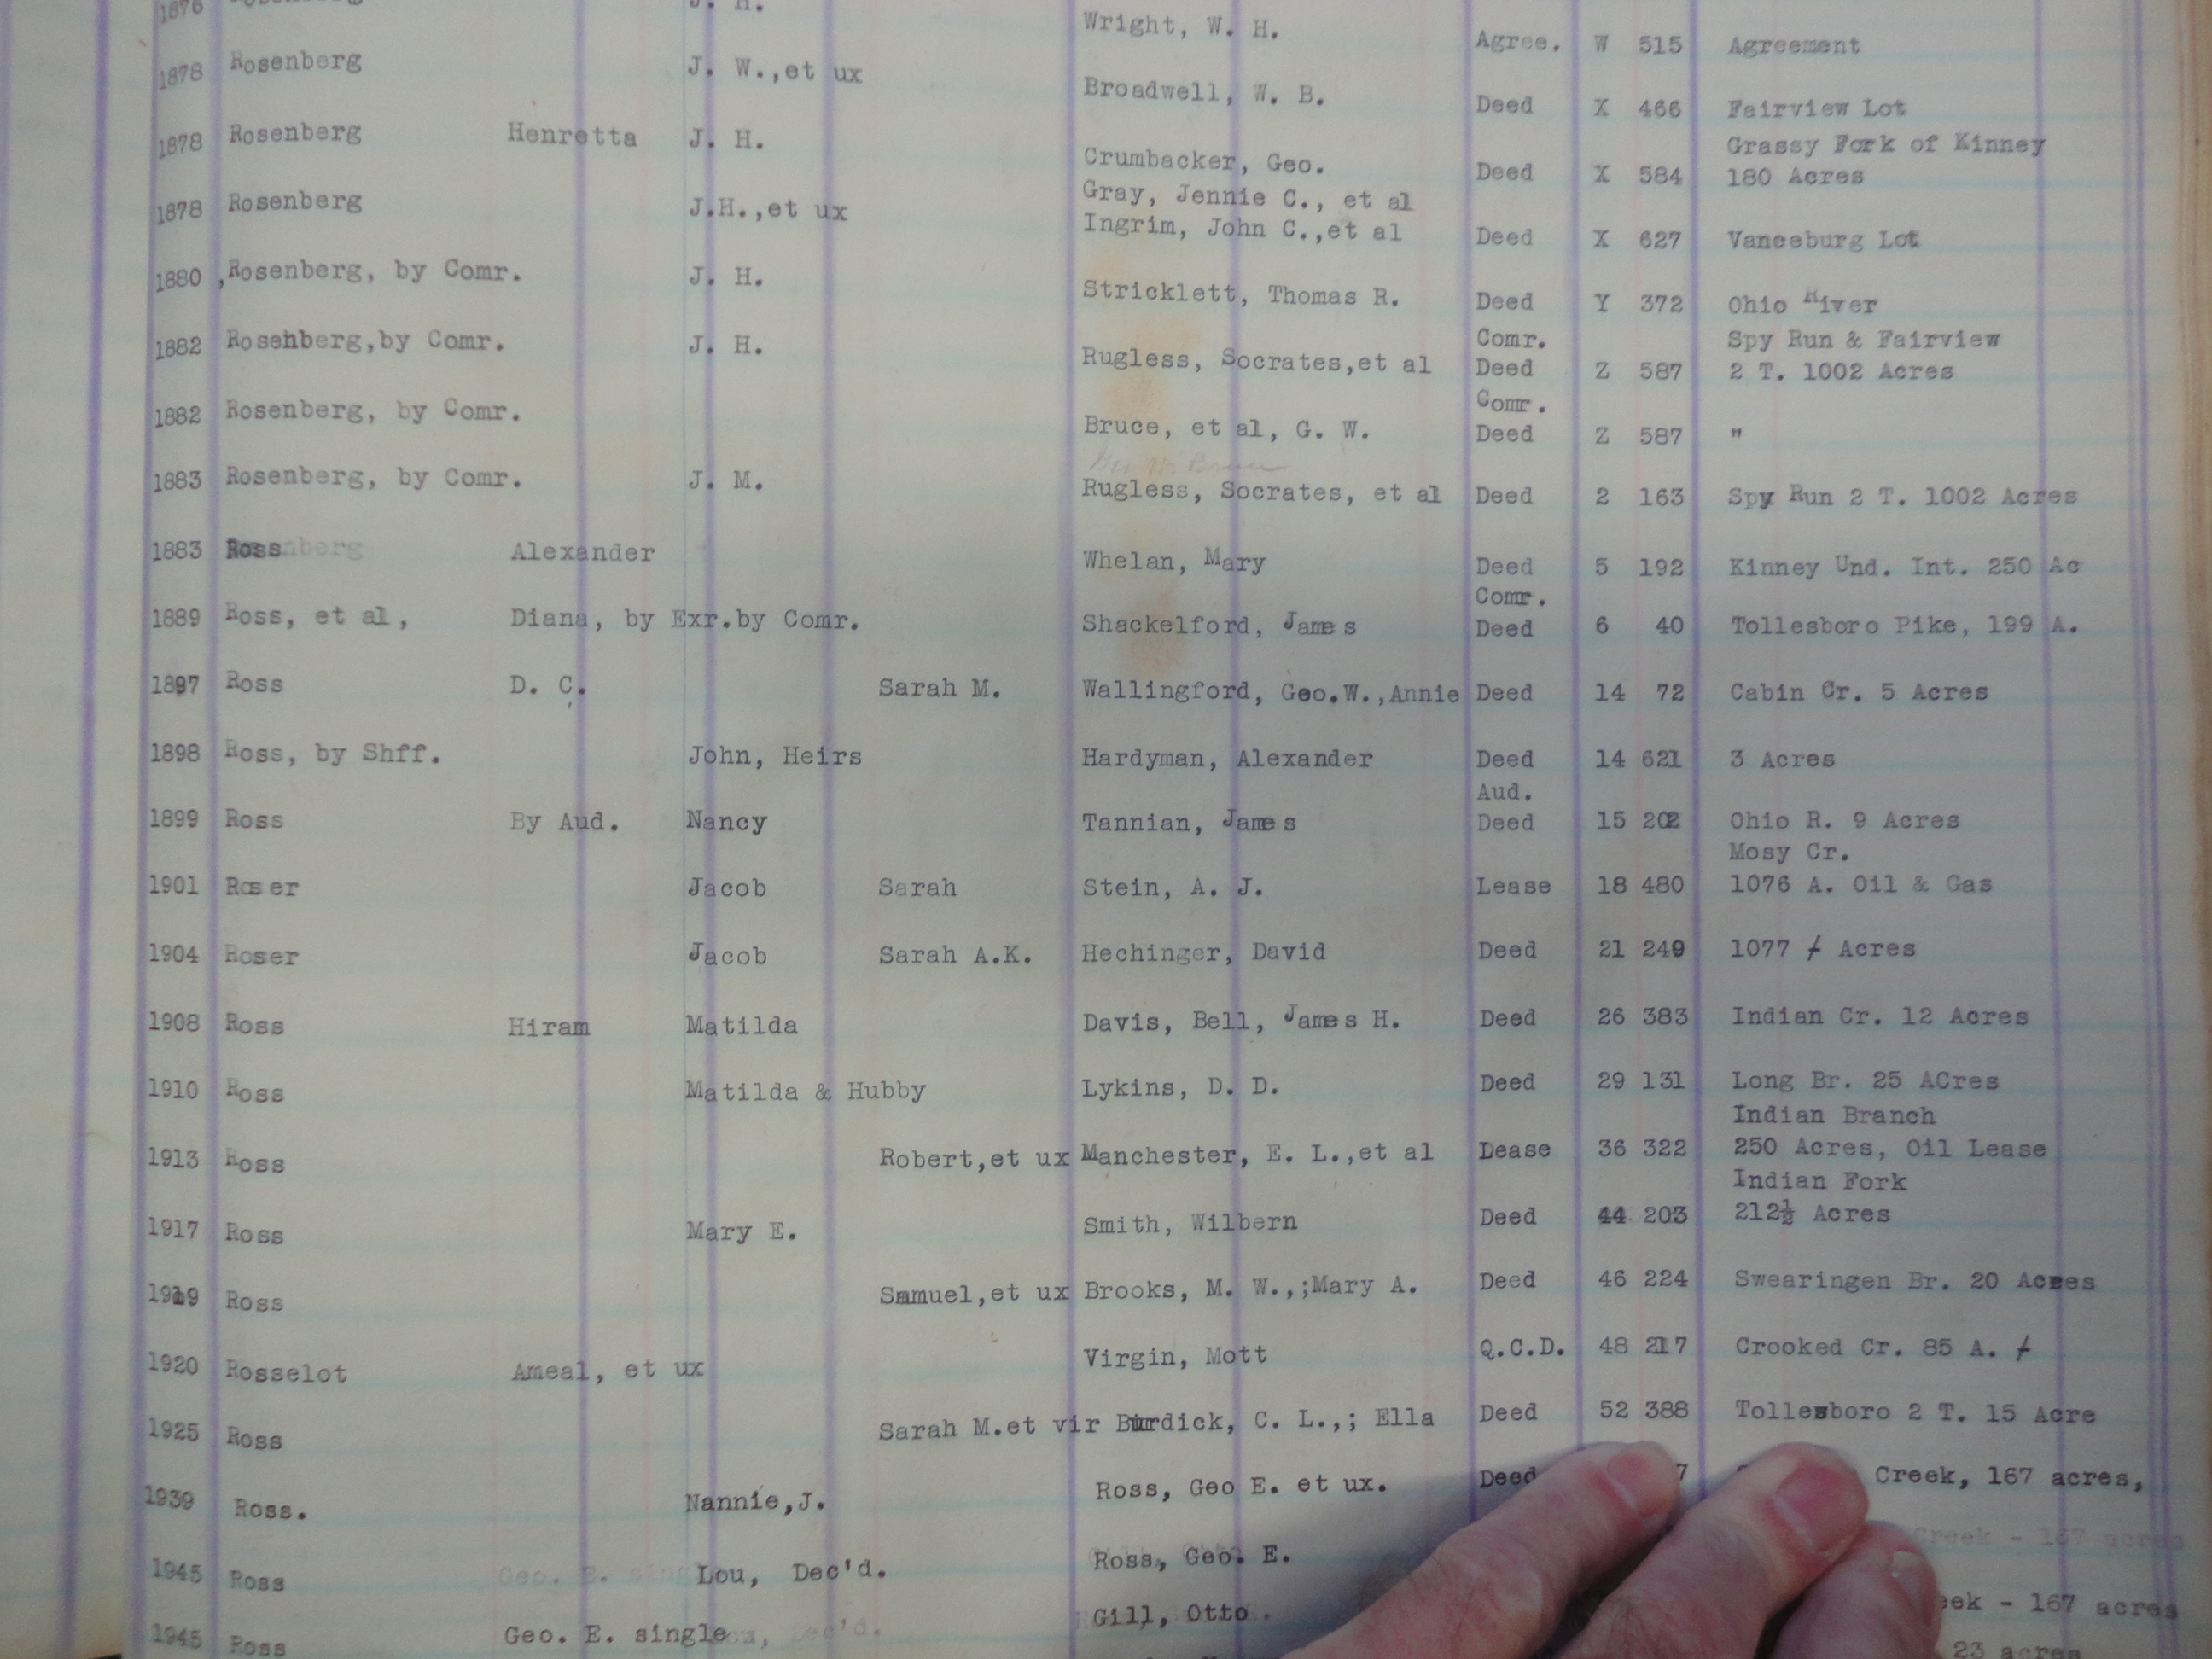 1876 J. H. Wright, W. H. Agree. W 515 Agreement
1878 Rosenberg J. W.,et ux Broadwell, W. B. Deed X 466 Fairview Lot
Grassy Fork of Kinney
1878 Rosenberg Henretta J. H. Crumbacker, Geo. Deed X 584 180 Acres
Gray, Jennie C., et al
1878 Rosenberg J.H.,et ux Ingrim, John C.,et al Deed X 627 Vanceburg Lot
1880 ,Rosenberg, by Comr. J. H. Stricklett, Thomas R. Deed Y 372 Ohio River
Comr. Spy Run & Fairview
1882 Rosenberg,by Comr. J. H. Rugless, Socrates,et al Deed Z 587 2 T. 1002 Acres
Comr.
1882 Rosenberg, by Comr. Bruce, et al, G. W. Deed Z 587 "
Geo W. Bruce
1883 Rosenberg, by Comr. J. M. Rugless, Socrates, et al Deed 2 163 Spy Run 2 T. 1002 Acres
1883 Ross Alexander Whelan, Mary Deed 5 192 Kinney Und. Int. 250 Ac
Comr.
1889 Ross, et al, Diana, by Exr.by Comr. Shackelford, James Deed 6 40 Tollesboro Pike, 199 A.
1897 Ross D. C. Sarah M. Wallingford, Geo.W.,Annie Deed 14 72 Cabin Cr. 5 Acres
1898 Ross, by Shff. John, Heirs Hardyman, Alexander Deed 14 621 3 Acres
Aud.
1899 Ross By Aud. Nancy Tannian, James Deed 15 202 Ohio R. 9 Acres
Mosy Cr.
1901 Roser Jacob Sarah Stein, A. J. Lease 18 480 1076 A. Oil & Gas
1904 Roser Jacob Sarah A.K. Hechinger, David Deed 21 249 1077 ≠ Acres
1908 Ross Hiram Matilda Davis, Bell, James H. Deed 26 383 Indian Cr. 12 Acres
1910 Ross Matilda & Hubby Lykins, D. D. Deed 29 131 Long Br. 25 ACres
Indian Branch
1913 Ross Robert,et ux Manchester, E. L.,et al Dease 36 322 250 Acres, Oil Lease
Indian Fork
1917 Ross Mary E. Smith, Wilbern Deed 44 203 212½ Acres
1919 Ross Samuel,et ux Brooks, M. W.,;Mary A. Deed 46 224 Swearingen Br. 20 Acres
1920 Rosselot Ameal, et ux Virgin, Mott Q.C.D. 48 217 Crooked Cr. 85 A. ≠
1925 Ross Sarah M.et vir Burdick, C. L.,; Ella Deed 52 388 Tollesboro 2 T. 15 Acre
1939 Ross. Nannie,J. Ross, Geo E. et ux. Deed 7 Creek, 167 acres,
Creek - 167 acres
1945 Ross Lou, Dec'd. Ross, Geo. E. eek - 167 acres
1945 Ross Geo. E. single Gill, Otto. 23 acres